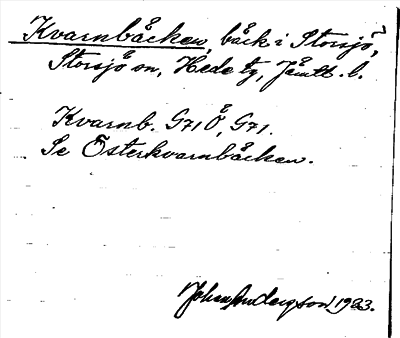 Kvarnbäcken, bäck i Storsjö,
Storsjö sn, Hede tg, Jämtl. l.
Kvarnb. G71 Ö, G71.
Se Österkvarnbäcken.
Johan Andersson 1923.